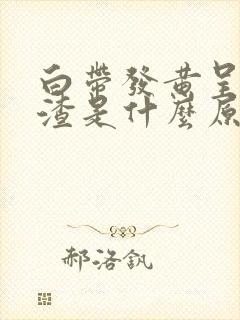 白帶發黄呈
渣是什麼原
郝洛釩